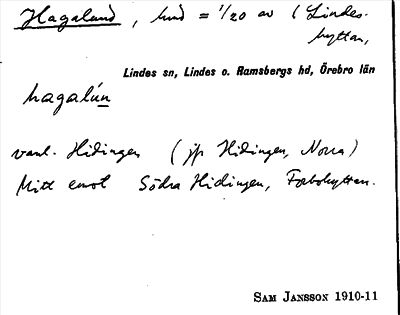 Hagalund, hmd = 1/20 av (Lindes-
hyttan,
Lindes sn, Lindes o. Ramsbergs hd, Örebro län
hagalún
vanl. Hidingen (jfr Hidingen, Norra)
Mitt emot Södra Hidingen, Fåbohyttan.
SAM JANSSON 1910-11